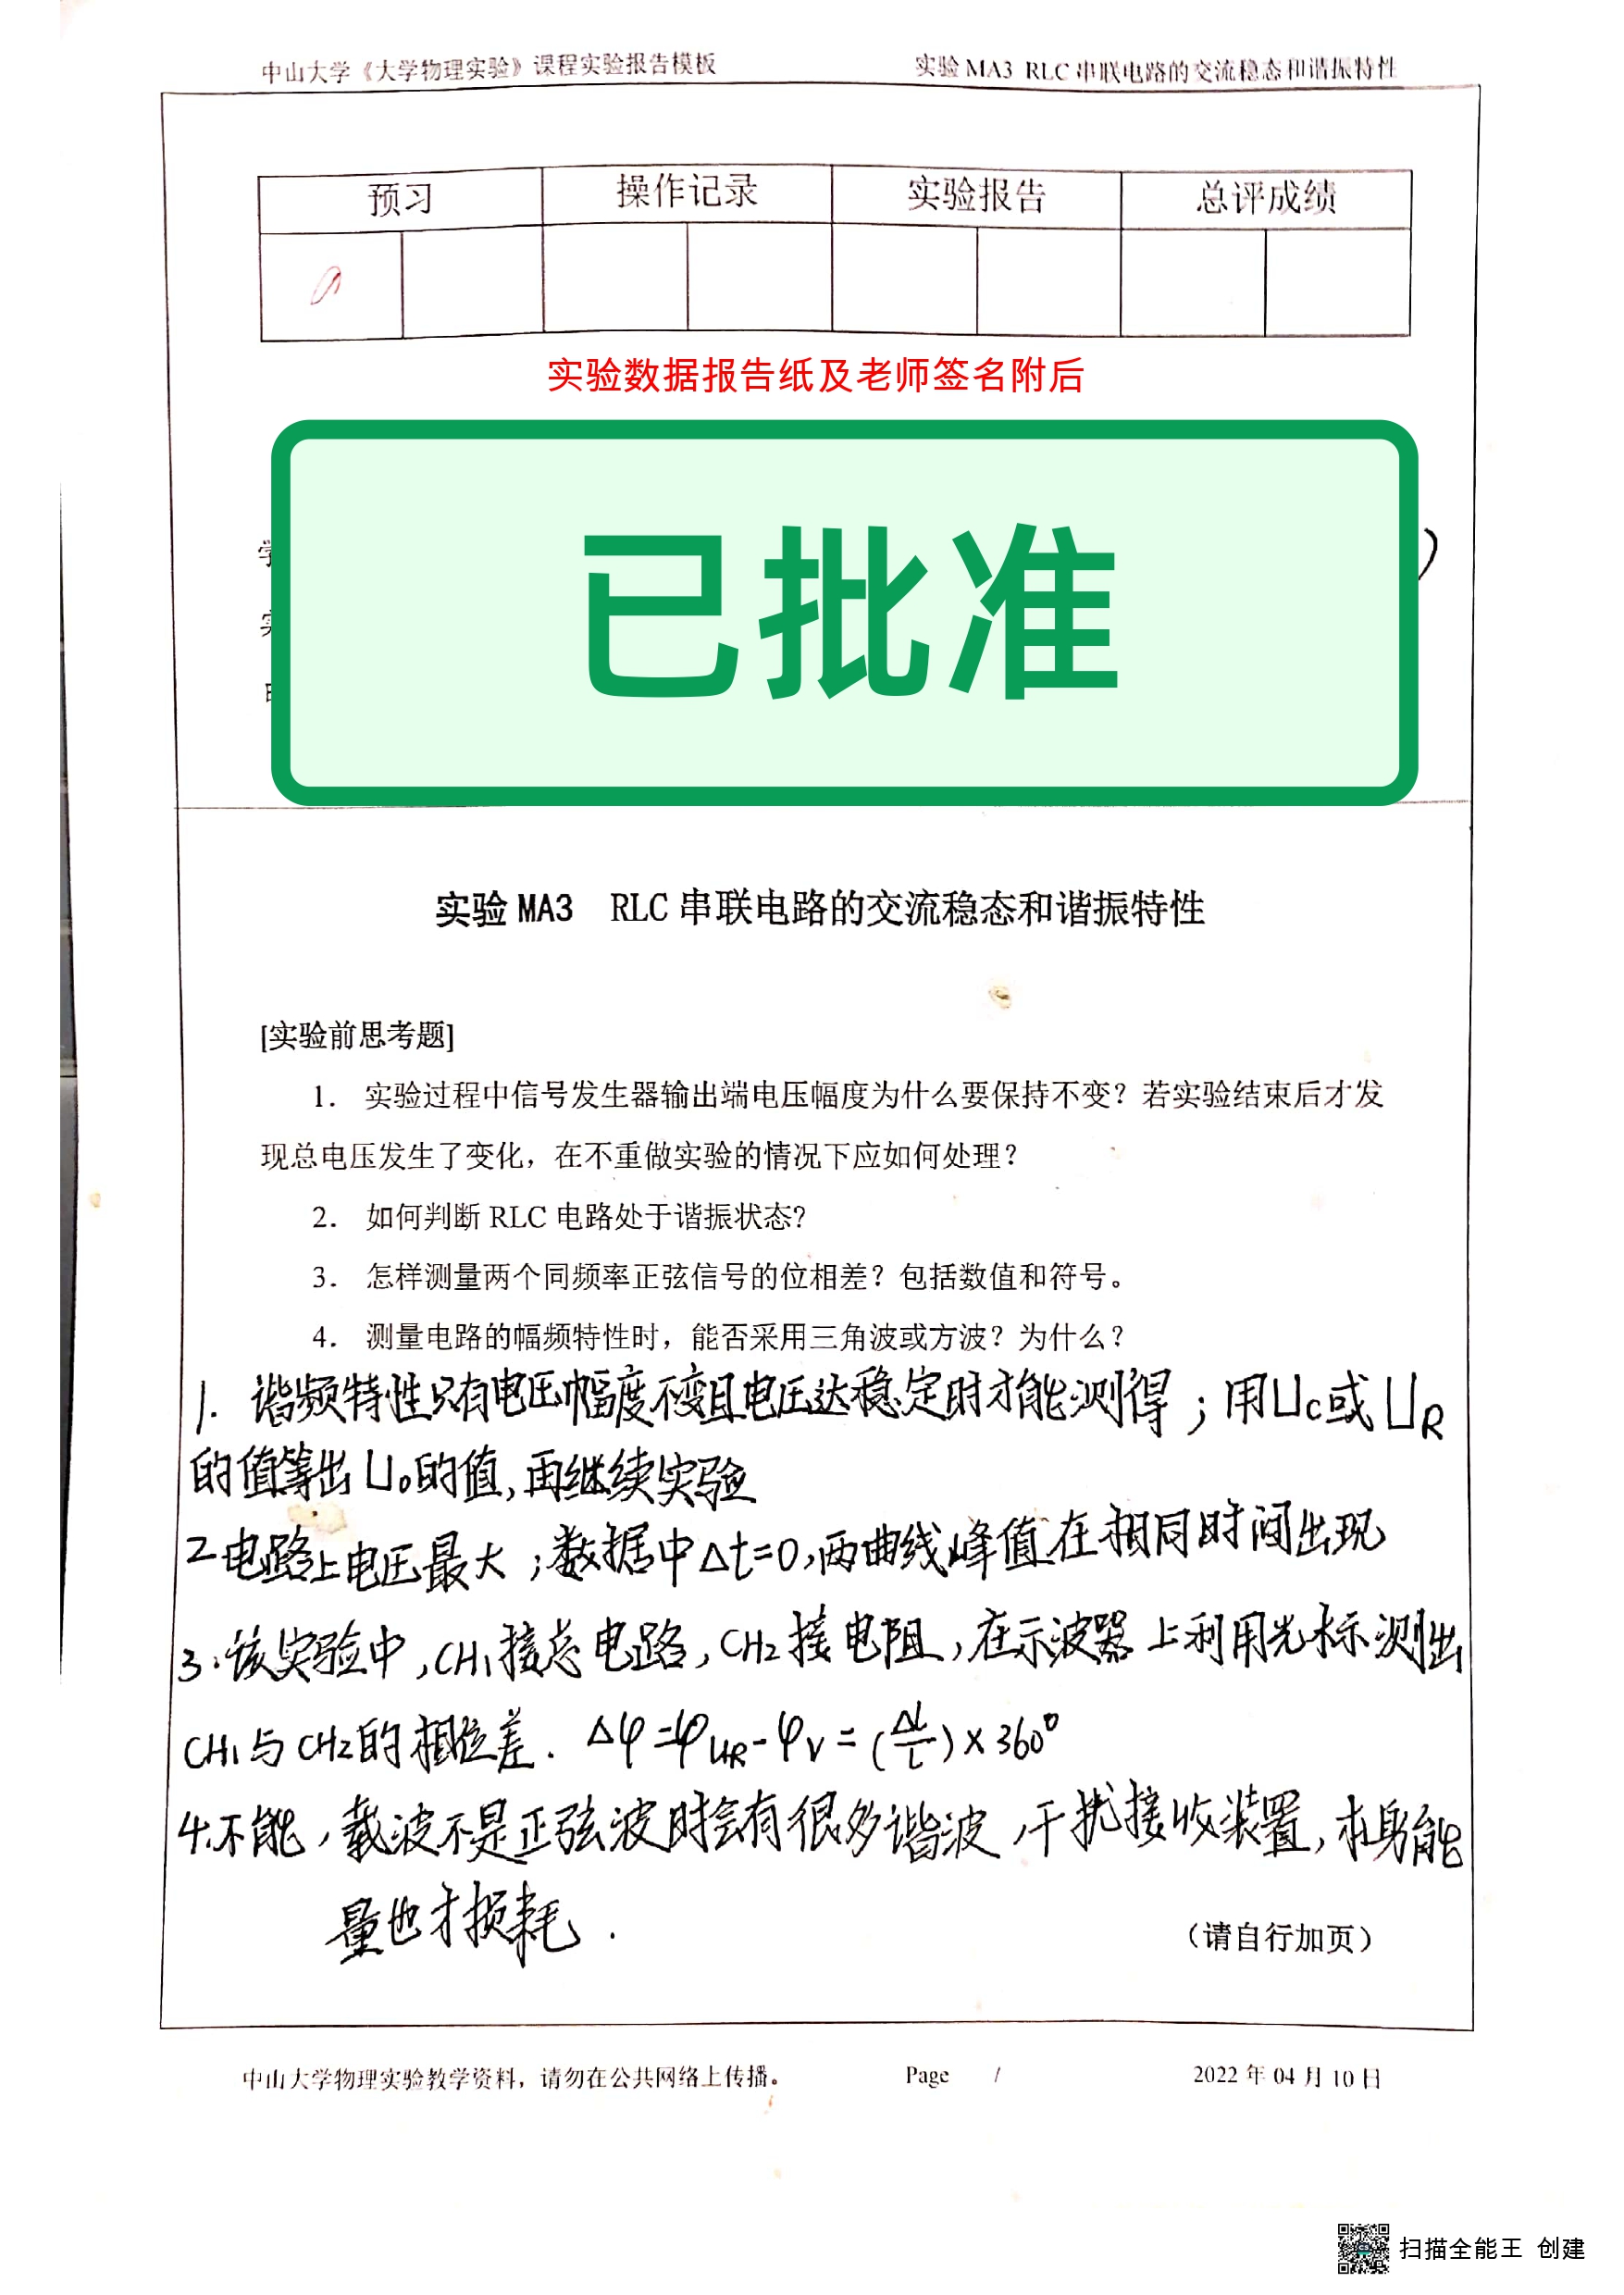 中山大学《大学物理实验》课程实验报告模板
实验 MA3 RLC 串联电路的交流稳态和谐振特性
预习 操作记录 实验报告 总评成绩
实验数据报告纸及老师签名附后
已批准
实验 MA3 RLC 串联电路的交流稳态和谐振特性
[实验前思考题]
1. 实验过程中信号发生器输出端电压幅度为什么要保持不变？若实验结束后才发
现总电压发生了变化，在不重做实验的情况下应如何处理？
2. 如何判断 RLC 电路处于谐振状态？
3. 怎样测量两个同频率正弦信号的位相差？包括数值和符号。
4. 测量电路的幅频特性时，能否采用三角波或方波？为什么？
1. 谐频特性只有电压幅度不变且电压达稳定时才能测得；用Uc或UR
的值算出U₀的值，再继续实验
2 电路上电压最大；数据中Δt=0，两曲线峰值在相同时间出现
3.该实验中，CH1接总电路，CH2接电阻，在示波器上利用光标测出
CH1与CH2的相位差. Δφ=φUR-φV=( )×360°
4.不能，载波不是正弦波时会有很多谐波，干扰接收装置，本身能
量也才损耗.
（请自行加页）
中山大学物理实验教学资料，请勿在公共网络上传播。 Page 1 2022 年 04 月 10 日
扫描全能王 创建